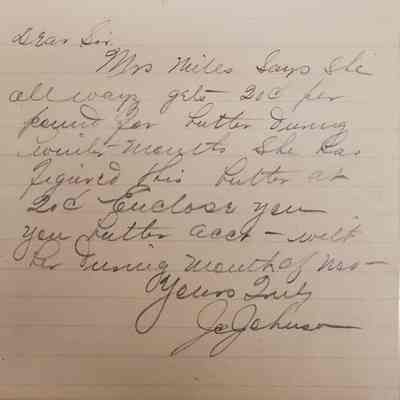 Dear Sir
Mrs Miles Says She
all ways gets 20¢ per
pound for butter During
winter Months She has
figured this butter at
20¢ Enclose you
you butter acct - with
her During Month of Nov -
Yours Truly
Jo Johnson